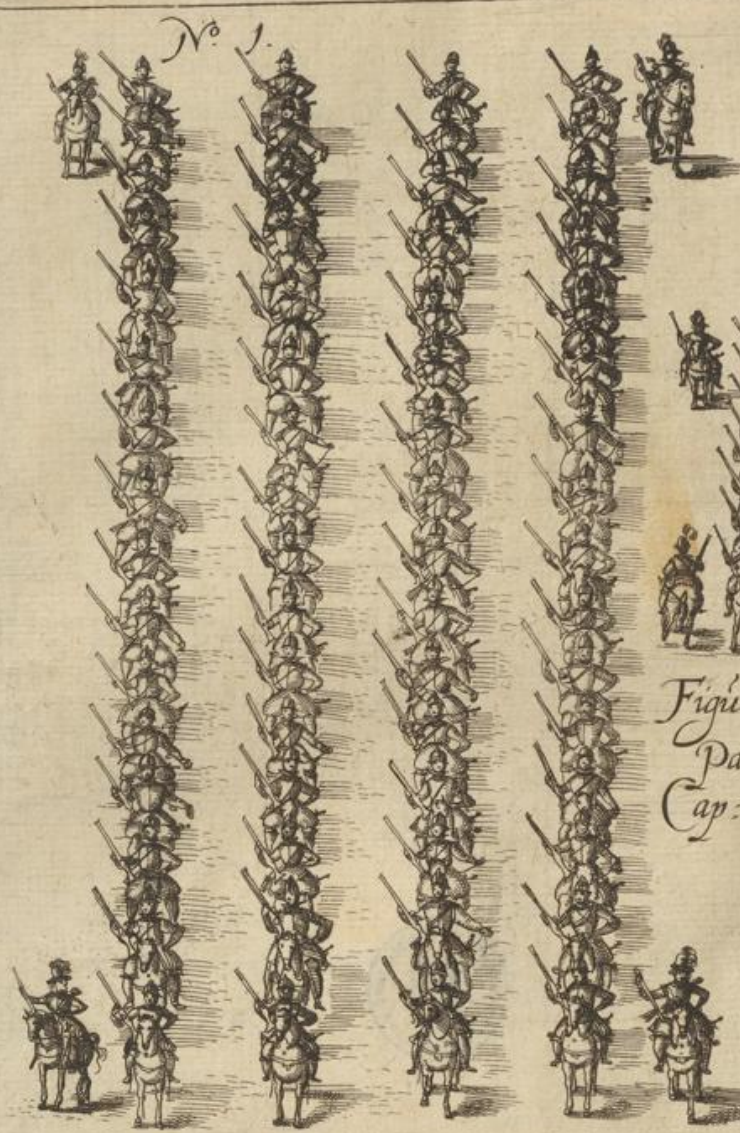 No. 1.
Figũ
Pa
Cap: